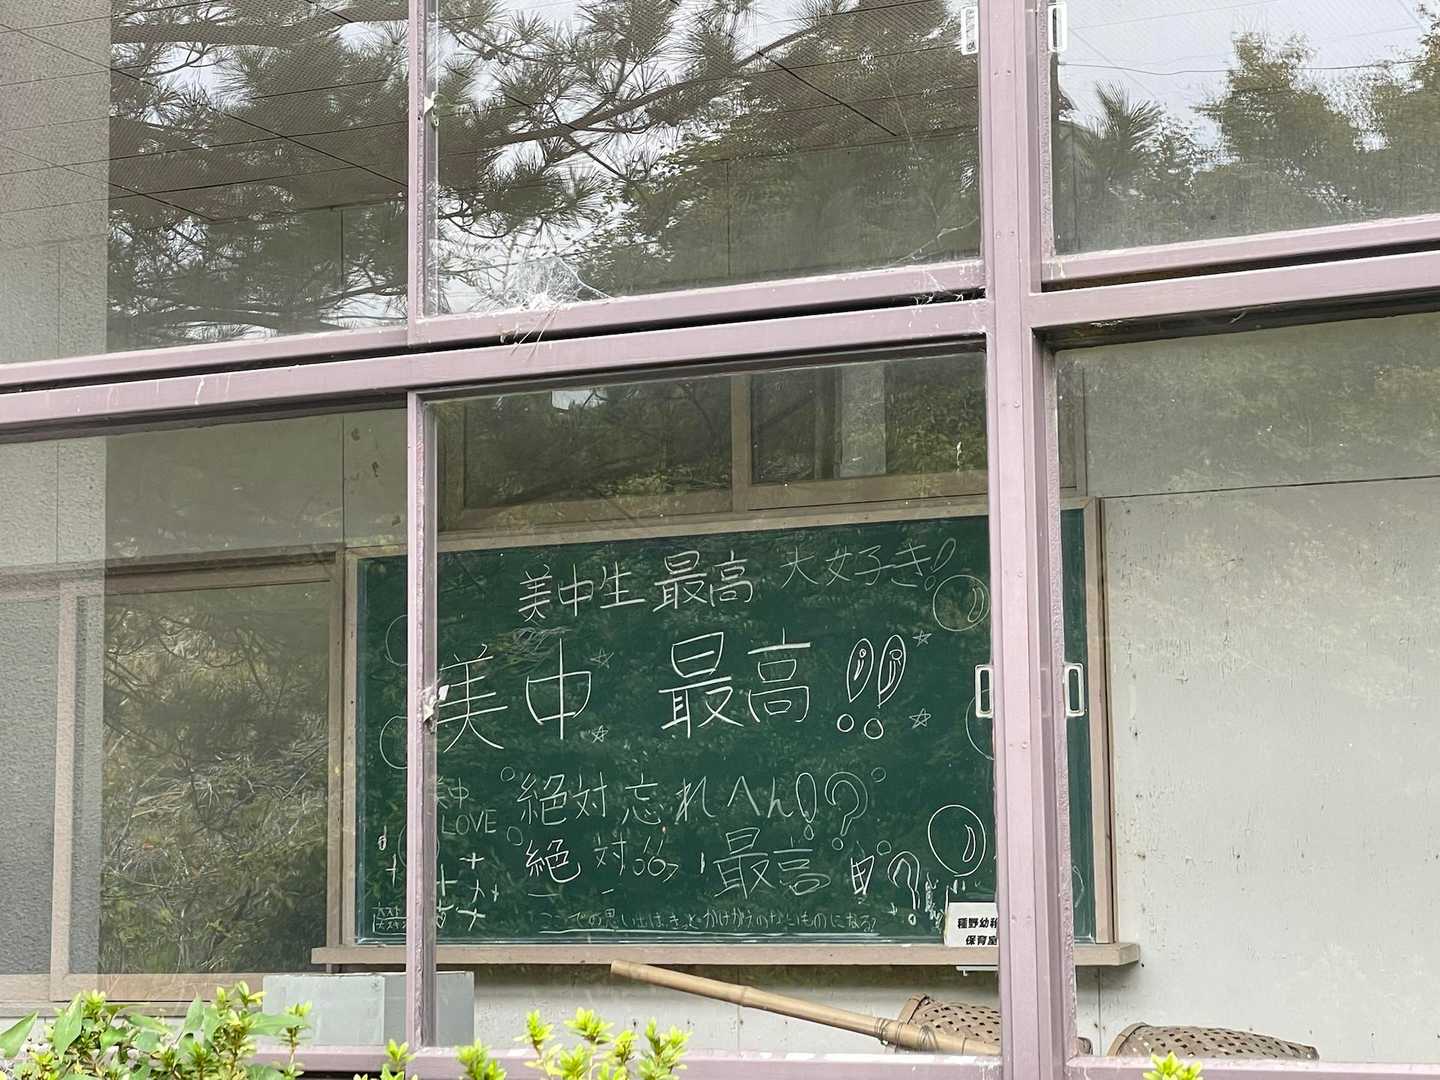 美中生 最高 大好き!
美中 最高!!
美中
LOVE
絶対 忘れへん!?
絶対 最高
ここでの思い出は、きっとかけがえのないものになる?
種野幼稚
保育室